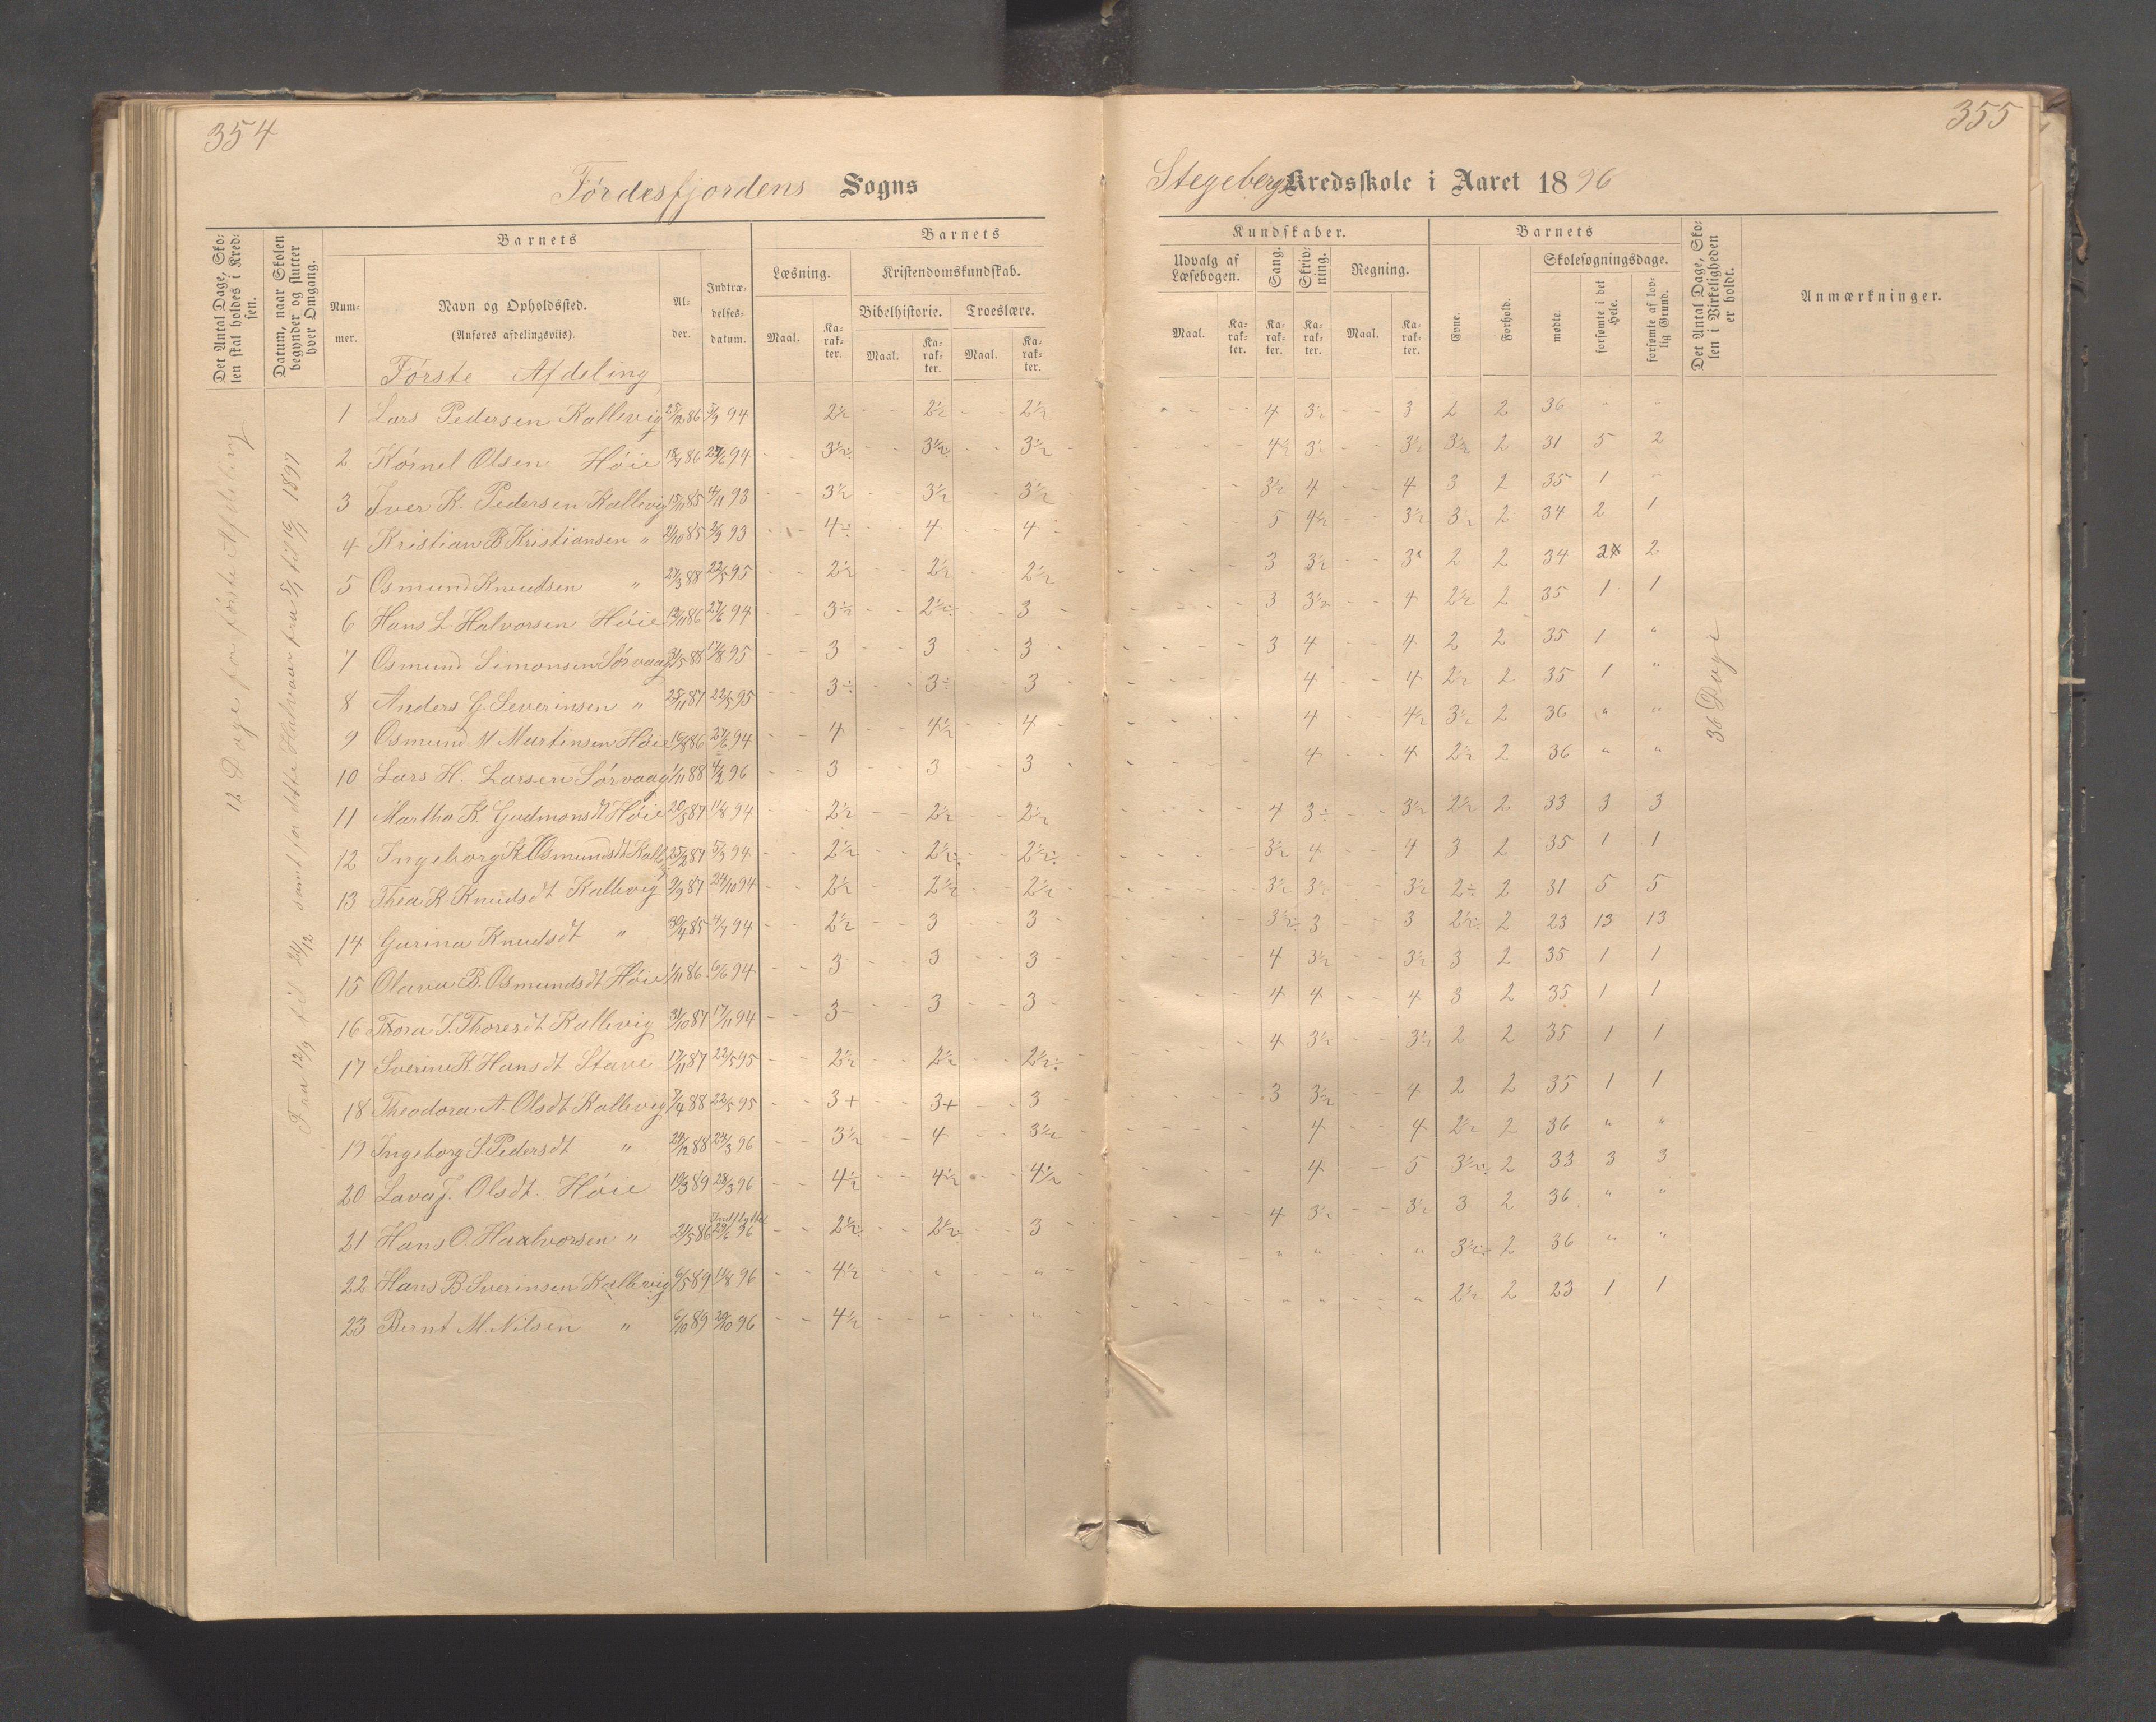 354
Fördesfjordens Sogns
Det Antal Dage, Sko-
len skal holdes i Kred-
sen.
Datum, naar Skolen
begynder og slutter
hver Omgang.
Barnets
Barnets
Num-
mer.
Navn og Opholdssted.
(Anføres afdelingsviis).
Al-
der.
Indtræ-
delses-
datum.
Læsning.
Kristendomskundskab.
Bibelhistorie.
Troeslære.
Maal.
Ka-
rak-
ter.
Maal.
Ka-
rak-
ter.
Maal.
Ka-
rak-
ter.
Første Afdeling
12 Dage for første Afdeling
Fra 12/9 til 21/12 samt for dette Halvaar fra 5/1 til 16/1 1897
1 Lars Pedersen Kallevig 2½ 2½ 2½
2 Körnel Olsen Høie 18/7 86 27/6 94 3½ 3½ 3½
3 Iver K. Pedersen Kallevig 15/11 85 4/11 93 3½ 3½ 3½
4 Kristian B Kristiansen " 4÷ 4 4
5 Osmund Knudsen " 27/3 88 22/5 95 2½ 2½ 2½
6 Hans L. Halvorsen Høie 13/11 86 27/6 94 3½ 2½÷ 3
7 Osmund Simonsen Sørvaag 31/5 88 17/8 95 3 3 3
8 Anders G. Severinsen " 28/11 87 22/5 95 3÷ 3÷ 3
9 Osmund M Martinsen Høie 16/8 86 27/6 94 4 4½ 4
10 Lars H. Larsen Sørvaag 1/11 88 4/2 96 3 3 3
11 Martha K. Gudmonsdt Høie 20/5 87 11/8 94 2½ 2½ 2½
12 Ingeborg K. Osmundsdt Kallevig 25/2 87 5/9 94 2½ 2½÷ 2½÷
13 Thea K. Knudsdt Kallevig 9/9 87 24/10 94 2½ 2½ 2½
14 Gurina Knudsdt " 30/4 85 4/7 94 2½ 3 3
15 Olava B. Osmundsdt Høie 1/11 86 6/6 94 3 3 3
16 Thora J. Thoresdt Kallevig 31/10 87 17/11 94 3- 3 3
17 Sverine K. Hansdt Stave 17/11 87 22/5 95 2½ 2½ 2½÷
18 Theodora A. Olsdt Kallevig 7/4 88 22/5 95 3+ 3+ 3
19 Ingeborg S. Pedersdt " 24/12 88 24/3 96 3½ 4 3½
20 Lava J. Olsdt. Høie 19/3 89 28/3 96 4½ 4½ 4½
Indflyttet
21 Hans O. Haalvorsen " 21/5 86 29/6 96 2½ 2½ 3
22 Hans B. Sverinsen Kallevig 6/5 89 11/8 96 4½ " "
23 Bernt M. Nilsen " 6/10 89 20/10 96 4½ " "
355
Stegebergs Kredsskole i Aaret 1896
Kundskaber.
Barnets
Udvalg af
Læsebogen.
Sang.
Skriv-
ning.
Regning.
Maal.
Ka-
rak-
ter.
Ka-
rak-
ter.
Ka-
rak-
ter.
Maal.
Ka-
rak-
ter.
Evne.
Forhold.
Skolesøgningsdage.
mødte.
forsømte i det
Hele.
forsømte af lov-
lig Grund.
Det Antal Dage, Sko-
len i Virkeligheden
er holdt.
Anmærkninger.
36 Dage
4 3½ 3 2 2 36 " "
4½ 3½ 3½ 3½ 2 31 5 2
3½ 4 4 3 2 35 1 "
5 4½ 3½ 3½ 2 34 2 1
3 3½ 3 2 2 34 2 2
3 3½ 4 2½ 2 35 1 1
3 4 4 2 2 35 1 "
4 4 2½ 2 35 1 "
4 4½ 3½ 2 36 " "
4 4 2½ 2 36 " "
4 3÷ 3½ 2½ 2 33 3 3
3½ 4 4 3 2 35 1 1
3½ 3½ 3½ 2÷ 2 31 5 5
3½÷ 3 3 2½÷ 2 23 13 13
4 3½ 3½ 3 2 35 1 1
4 4 4 3 2 35 1 1
4 3½ 3½ 2 2 35 1 1
3 3½ 4 2 2 35 1 1
4 4 2½ 2 36 " "
4 5 3½ 2 33 3 3
4 3½ 3½ 3 2 36 " "
" " " 3½ 2 36 " "
" " " 2½ 2 23 1 1